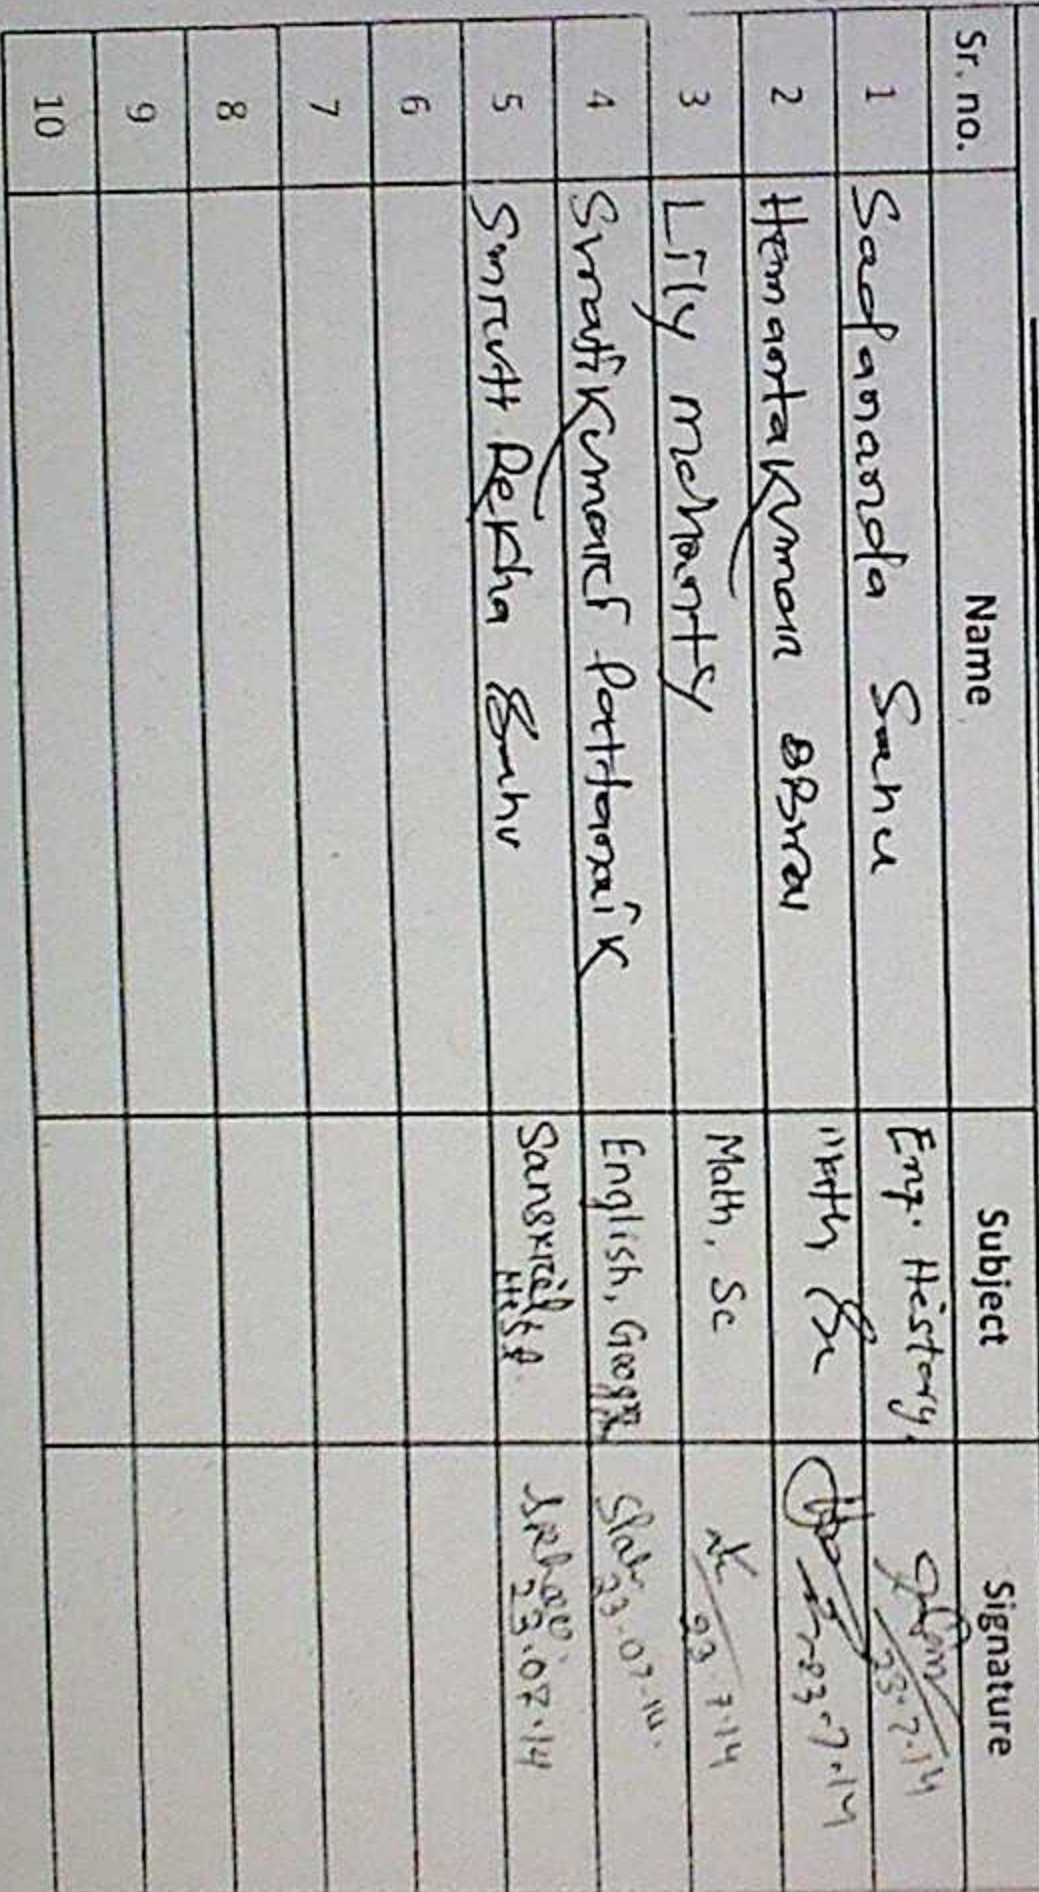 Sr. no. Name Subject Signature
1 Sadananda Sahu Eng. History, 23.7.14
2 Hemanta Kumar Math Sc 23-7-14
3 Lily mohanty Math, Sc 23.7.14
4 Kumar Pattanaik English, 23.07.14.
5 Rekha Sahu Sanskrit 23.07.14
6
7
8
9
10